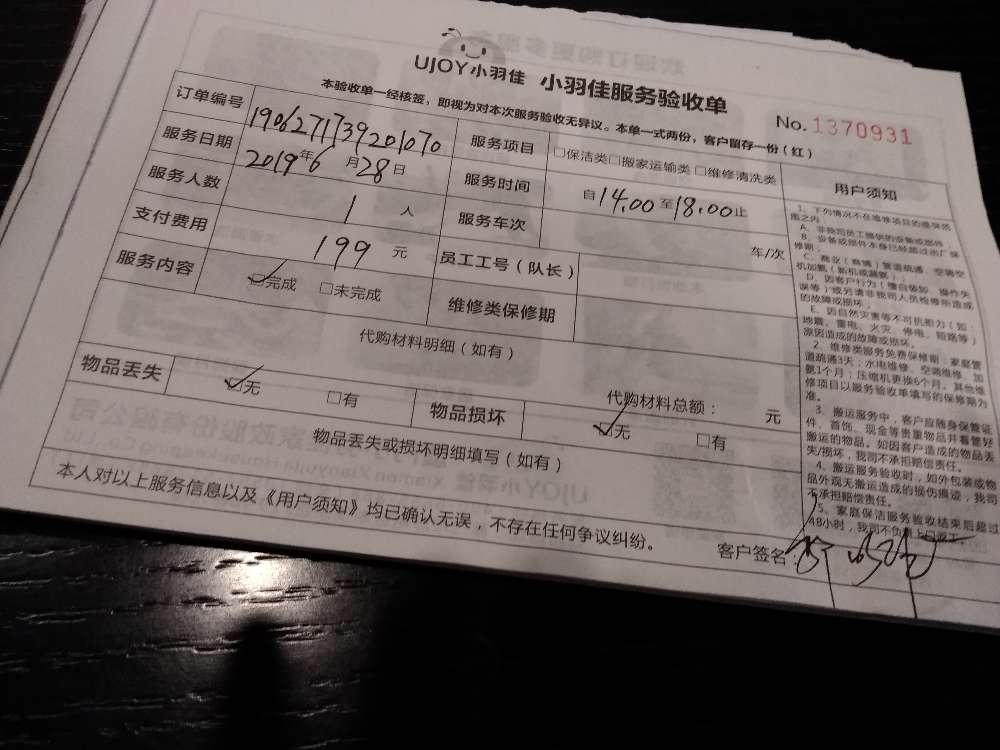 UJOY小羽佳 小羽佳服务验收单
本验收单一经核签，即视为对本次服务验收无异议。本单一式两份，客户留存一份（红）
No.1370931
订单编号 1906271739201070 服务项目 □保洁类□搬家运输类 □维修清洗类
服务日期 2019年6月28日 服务时间 自14.00至18.00止
服务人数 1人 服务车次 车/次
支付费用 199元 员工工号（队长）
服务内容 ☑完成 □未完成 维修类保修期
代购材料明细（如有）
代购材料总额： 元
物品丢失 ☑无 □有 物品损坏 ☑无 □有
物品丢失或损坏明细填写（如有）
本人对以上服务信息以及《用户须知》均已确认无误，不存在任何争议纠纷。
客户签名：
用户须知
1、下列情况不在维修项目的维保范
围之内
A、非我司员工提供的设备或部件
B、设备或部件本身已经超过出厂保
修期；
C、商业（商铺）管道疏通、空调空
机加氨（新机或漏氨）
D、因客户行为（擅自装卸、操作失
误等）或另请非我司人员检修所造成
的故障或损坏；
E、因自然灾害等不可抗拒力（如：
地震、雷电、火灾、停电、短路等）
原因造成的故障或损坏。
2、维修类服务免费保修期：家庭管
道疏通3天；水电维修、空调维修、加
氨1个月；压缩机更换6个月。其他维
修项目以服务验收单填写的保修期为
准。
3、搬运服务中，客户应随身保管证
件、首饰、现金等贵重物品并看管好
搬运的物品。如因客户造成的物品丢
失/损坏，我司不承担赔偿责任。
4、搬运服务验收时，如外包装或物
品外观无搬运造成的损伤痕迹，我司
不承担赔偿责任。
5、家庭保洁服务验收结束后超过
48小时，我司不负责上门返工。